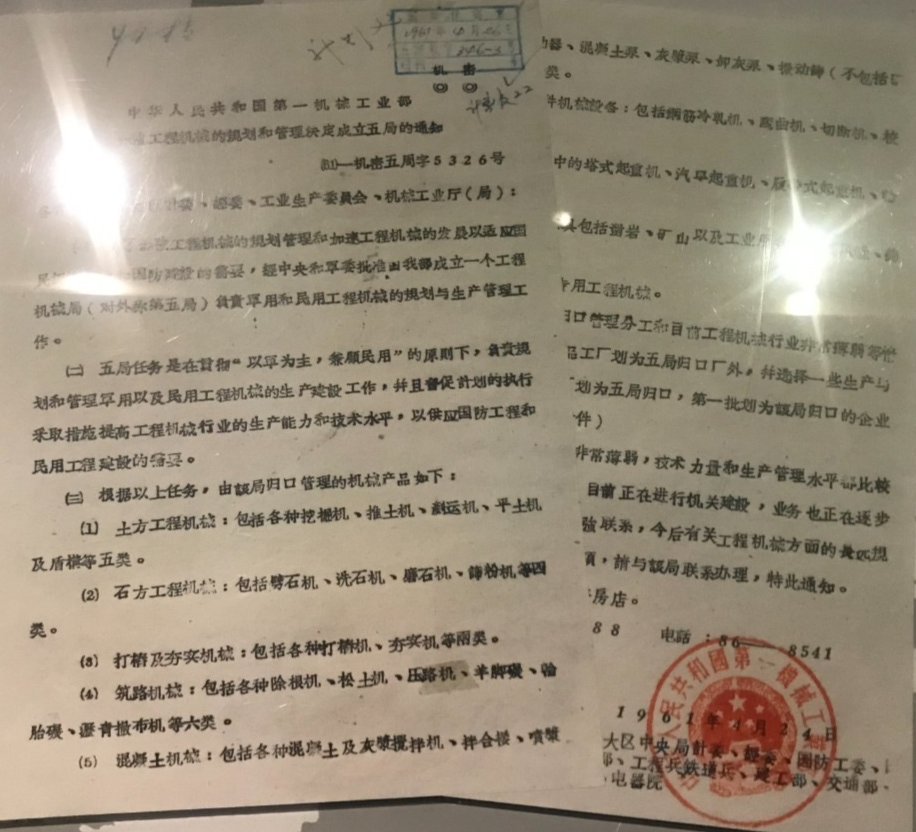 1961年4月26日
机密
中华人民共和国第一机械工业部
工程机械的规划和管理决定成立五局的通知
(61)一机密五周字5326号
计委、经委、工业生产委員会、机械工业厅(局):
工程机械的規划管理和加速工程机械的发展以适应国
国防建設的需要,經中央和軍委批准由我部成立一个工程
机械局(对外称第五局)負責軍用和民用工程机械的規划与生产管理工
作。
㈡ 五局任务是在貫彻“以軍为主,兼顧民用”的原则下,負責規
划和管理軍用以及民用工程机械的生产建設工作,幷且督促計划的执行
采取措施提高工程机械行业的生产能力和技朮水平,以供应国防工程和
民用工程建設的需要。
㈢ 根据以上任务,由該局归口管理的机械产品如下:
⑴ 土方工程机械:包括各种挖掘机、推土机、剷运机、平土机
及盾構等五类。
⑵ 石方工程机械:包括劈石机、洗石机、磨石机、篩粉机等四
类。
⑶ 打樁及夯实机械:包括各种打樁机、夯实机等兩类。
⑷ 筑路机械:包括各种除根机、松土机、压路机、羊脚碾、輪
胎碾、瀝青撒布机等六类。
⑸ 混凝土机械:包括各种混凝土及灰漿攪拌机、拌合楼、噴漿
器、混凝土泵、灰漿泵、卸灰泵、振动篩(不包括
类。
机械設备:包括鋼筋冷軋机、弯曲机、切断机、校
中的塔式起重机、汽車起重机、
具包括凿岩、矿山以及工业
用工程机械。
归口管理分工和目前工程机械行业非常薄弱等
品工厂划为五局归口厂外,幷选择一些生产与
划为五局归口,第一批划为該局归口的企业
件)
非常薄弱,技朮力量和生产管理水平都比較
目前正在进行机关建設,业务也正在逐步
强联系,今后有关工程机械方面的长远規
項,請与該局联系办理,特此通知。
房店。
88 电話:86—8541
中华人民共和國第一機械工業部
1961年4月24日
大区中央局計委、經委、国防工委、
部、工程兵鉄道兵、建工部、交通部、
电器院